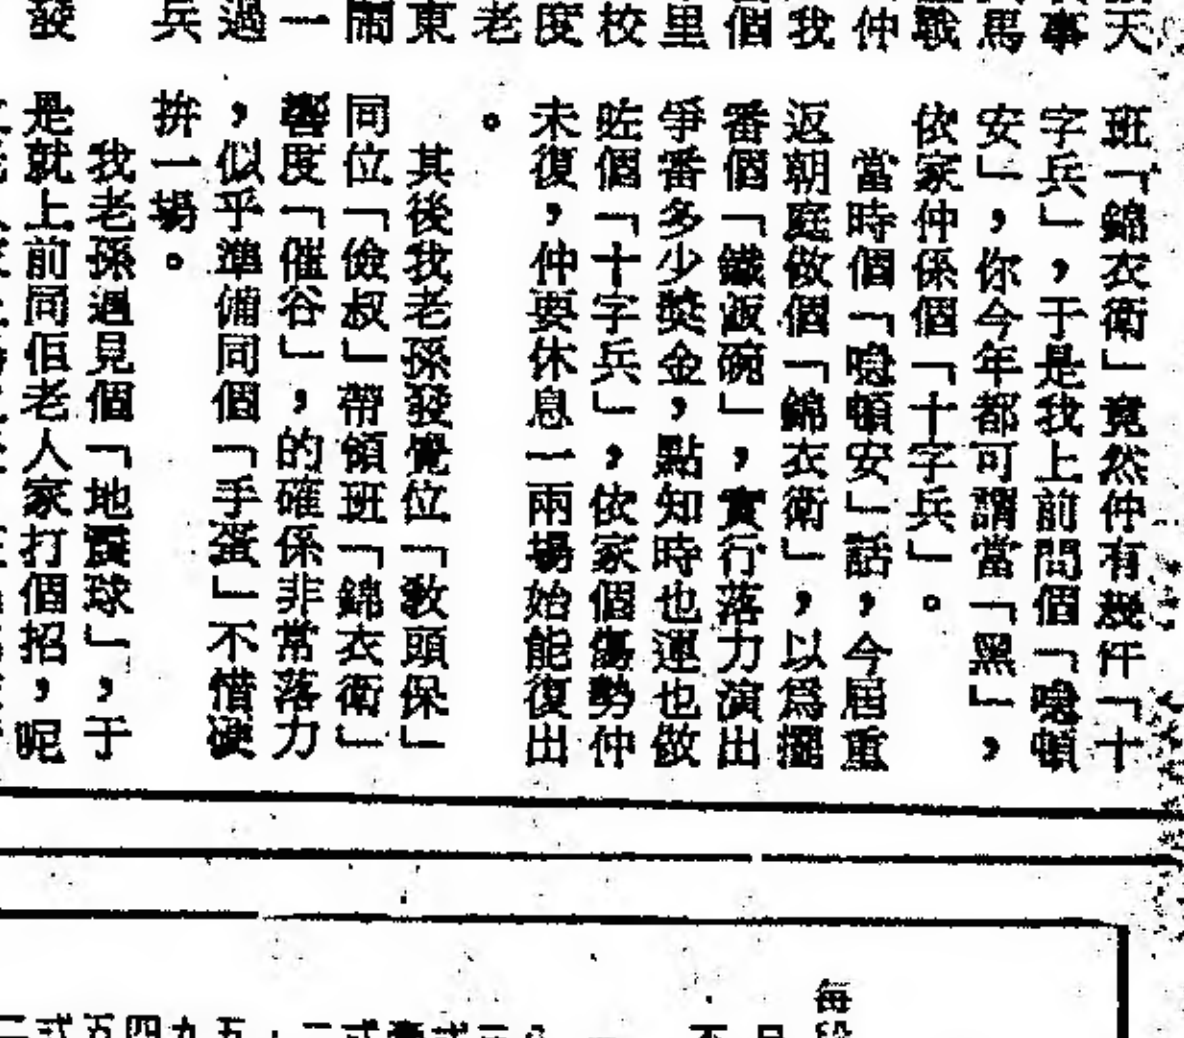 天
事
馬
戰
仲
我
個
里
校
度
老
東
鬧
一
過
兵
發
班「錦衣衛」竟然仲有幾仟「十
字兵」，于是我上前問個「噏頓
安」，你今年都可謂當「黑」，
依家仲係個「十字兵」。
當時個「噏頓安」話，今屆重
返朝庭做個「錦衣衛」，以爲擺
番個「鐵飯碗」，實行落力演出
爭番多少獎金，點知時也運也做
咗個「十字兵」，依家個傷勢仲
未復，仲要休息一兩場始能復出
。
其後我老孫發覺位「教頭保」
同位「儉叔」帶領班「錦衣衛」
響度「催谷」，的確係非常落力
，似乎準備同個「手蛋」不惜硬
拚一場。
我老孫過見個「地震球」，于
是就上前同佢老人家打個招，呢
每段